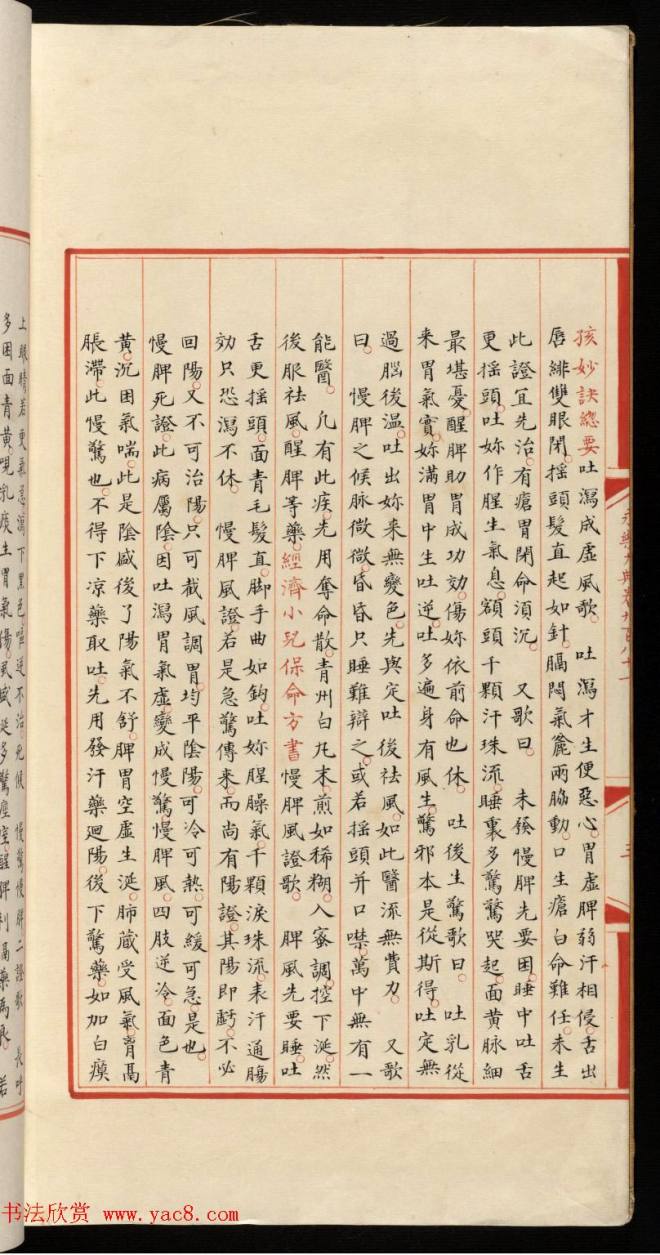 永樂大典卷九百八十一
三
孩妙訣總要吐瀉成虛風歌。 吐瀉才生便惡心。胃虛脾弱汗相侵。舌出
唇緋雙眼閉。搖頭髮直起如針。膈悶氣麄兩脇動。口生瘡白命難任。未生
此證宜先治。有瘡胃閉命須沉。 又歌曰。 未發慢脾先要困。睡中吐舌
更搖頭。吐妳作腥生氣息。額頭千顆汗珠流。睡裏多驚驚哭起。面黃脉細
最堪憂。醒脾助胃成功効。傷妳依前命也休。 吐後生驚歌曰。 吐乳從
來胃氣實。妳滿胃中生吐逆。吐多遍身有風生。驚邪本是從斯得。吐定無
過腦後溫。吐出妳來無變色。先與定吐後祛風。如此醫流無費力。 又歌
曰。 慢脾之候脉微微。昏昏只睡難辯之。或若搖頭并口噤。萬中無有一
能醫。 凡有此疾。先用奪命散。青州白丸末。煎如稀糊。入蜜調。控下涎。然
後服祛風。醒脾等藥。經濟小兒保命方書慢脾風證歌。 脾風先要睡。吐
舌更搖頭。面青毛髮直。脚手曲如鈎。吐妳腥臊氣。千顆淚珠流。表汗通腸
効。只恐瀉不休。 慢脾風證。若是急驚傳來。而尚有陽證。其陽即虧。不必
回陽。又不可治陽。只可截風調胃。均平陰陽。可冷可熱。可緩可急是也。
慢脾死證。此病屬陰。因吐瀉胃氣虛。變成慢驚慢脾風。四肢逆冷。面色青
黃。沉困氣喘。此是陰盛後了陽氣不舒。脾胃空虛生涎。肺藏受風氣。胷膈
脹滯。此慢驚也。不得下凉藥取吐。先用發汗藥迴陽。後下驚藥。如加白瘼
上眼睛。若更氣急瀉下黑色。嘔逆不治死候。 慢驚慢脾二證歌。 長呼
多困面青黃。吮乳痰生胃氣傷。風盛涎多驚塵室。醒脾利膈藥為良。 若
书法欣赏 www.yac8.com